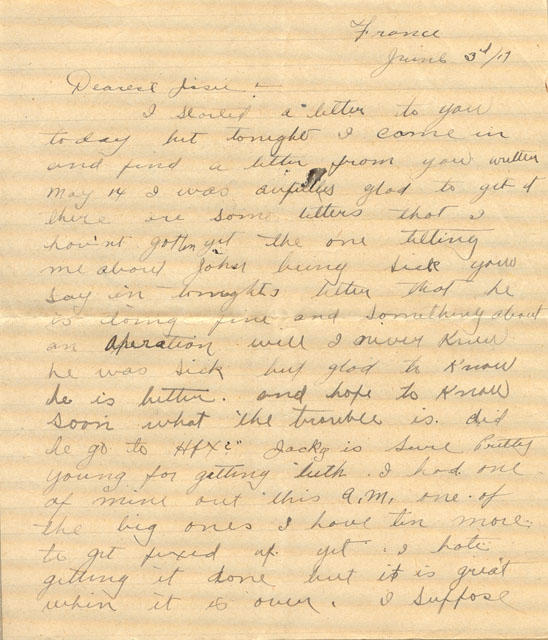 France
June 3rd/17
Dearest Josie :-
I started a letter to you
today but tonight I came in
and find a letter from you written
May 14 I was awfully glad to get it
there are some letters that I
hav'nt gotten yet the one telling
me about John being sick you
say in tonights letter that he
is doing fine and something about
an operation well I never knew
he was sick but glad to know
he is better. and hope to know
soon what the trouble is. did
he go to HfX?" Jack is sure Pretty
young for getting teeth. I had one
of mine out this A.M. one of
the big ones I have ten more
to get fixed up yet. I hate
getting it done but it is great
when it is over. I suppose